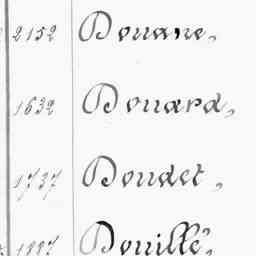 2152 Douane,
1632 Douard,
1737 Doudet,
1887 Douillé,